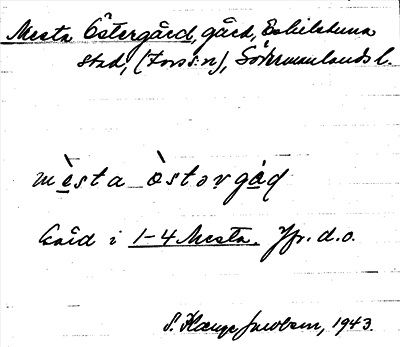 Mesta Östergård, gård, Eskilstuna
stad, (Fors sn), Södermanlands l.
mèsta òstərgåd
Gård i 1–4 Mesta. Jfr. d.o.
S. Hauge Jacobsen, 1943.